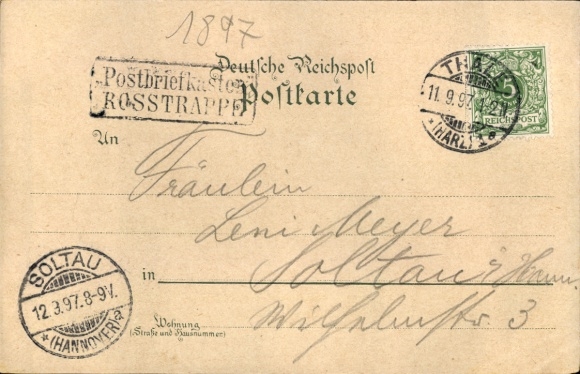 1897
Deutsche Reichspost
Postkarte
Postbriefkasten
ROSSTRAPPE
THALE
11.9.97.1-2N.
*(HARZ)1e
5
REICHSPOST
An
Fräulein
Leni Meyer
in Soltau i/Hann.
Wohnung
(Straße und Hausnummer)
Wilhelmstr. 3
SOLTAU
12.9.97.8-9V.
*(HANNOVER)a